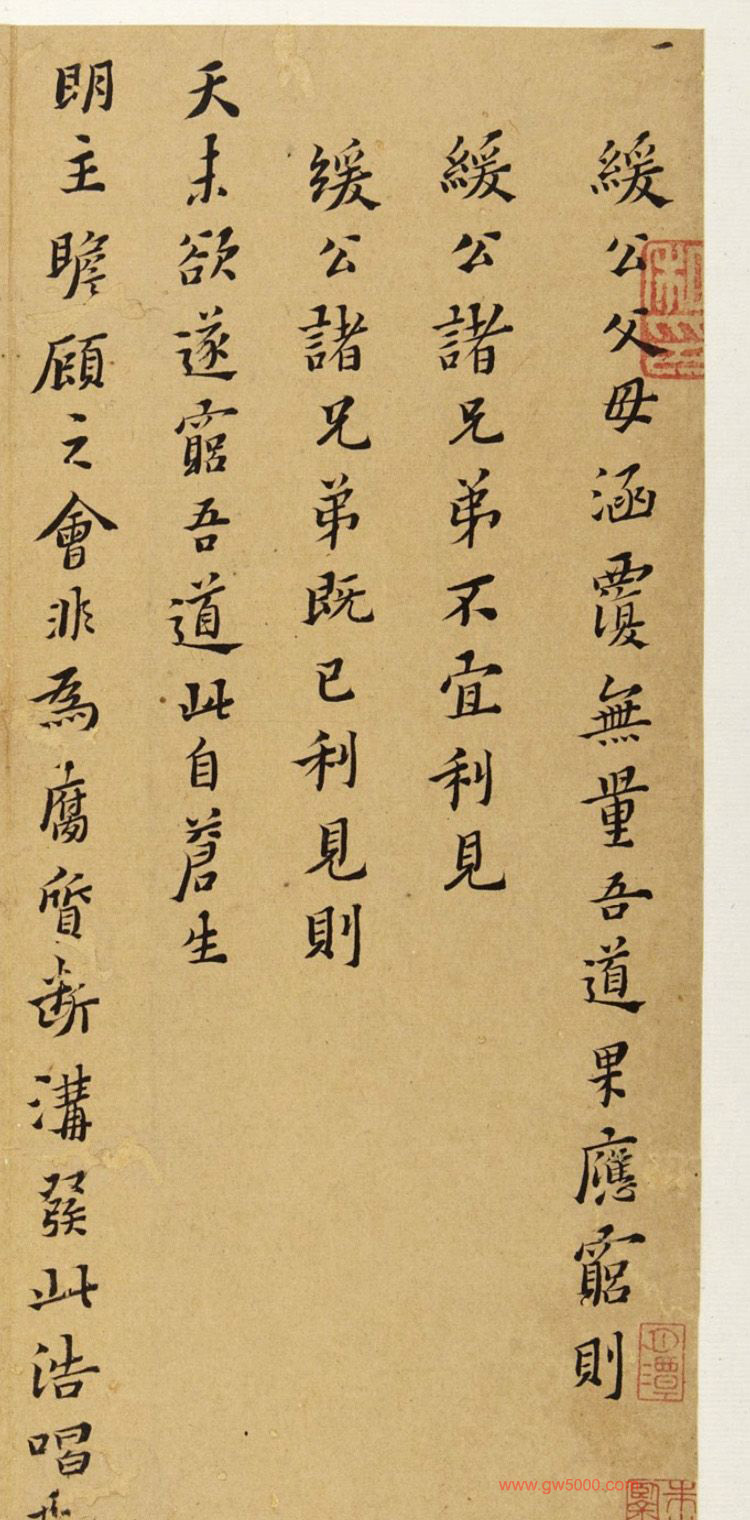 緩公父母涵覆無量吾道果應窮則
緩公諸兄弟不宜利見
緩公諸兄弟既已利見則
天未欲遂窮吾道此自蒼生
明主瞻顧之會非為腐質斷溝發此浩唱
www.gw5000.com